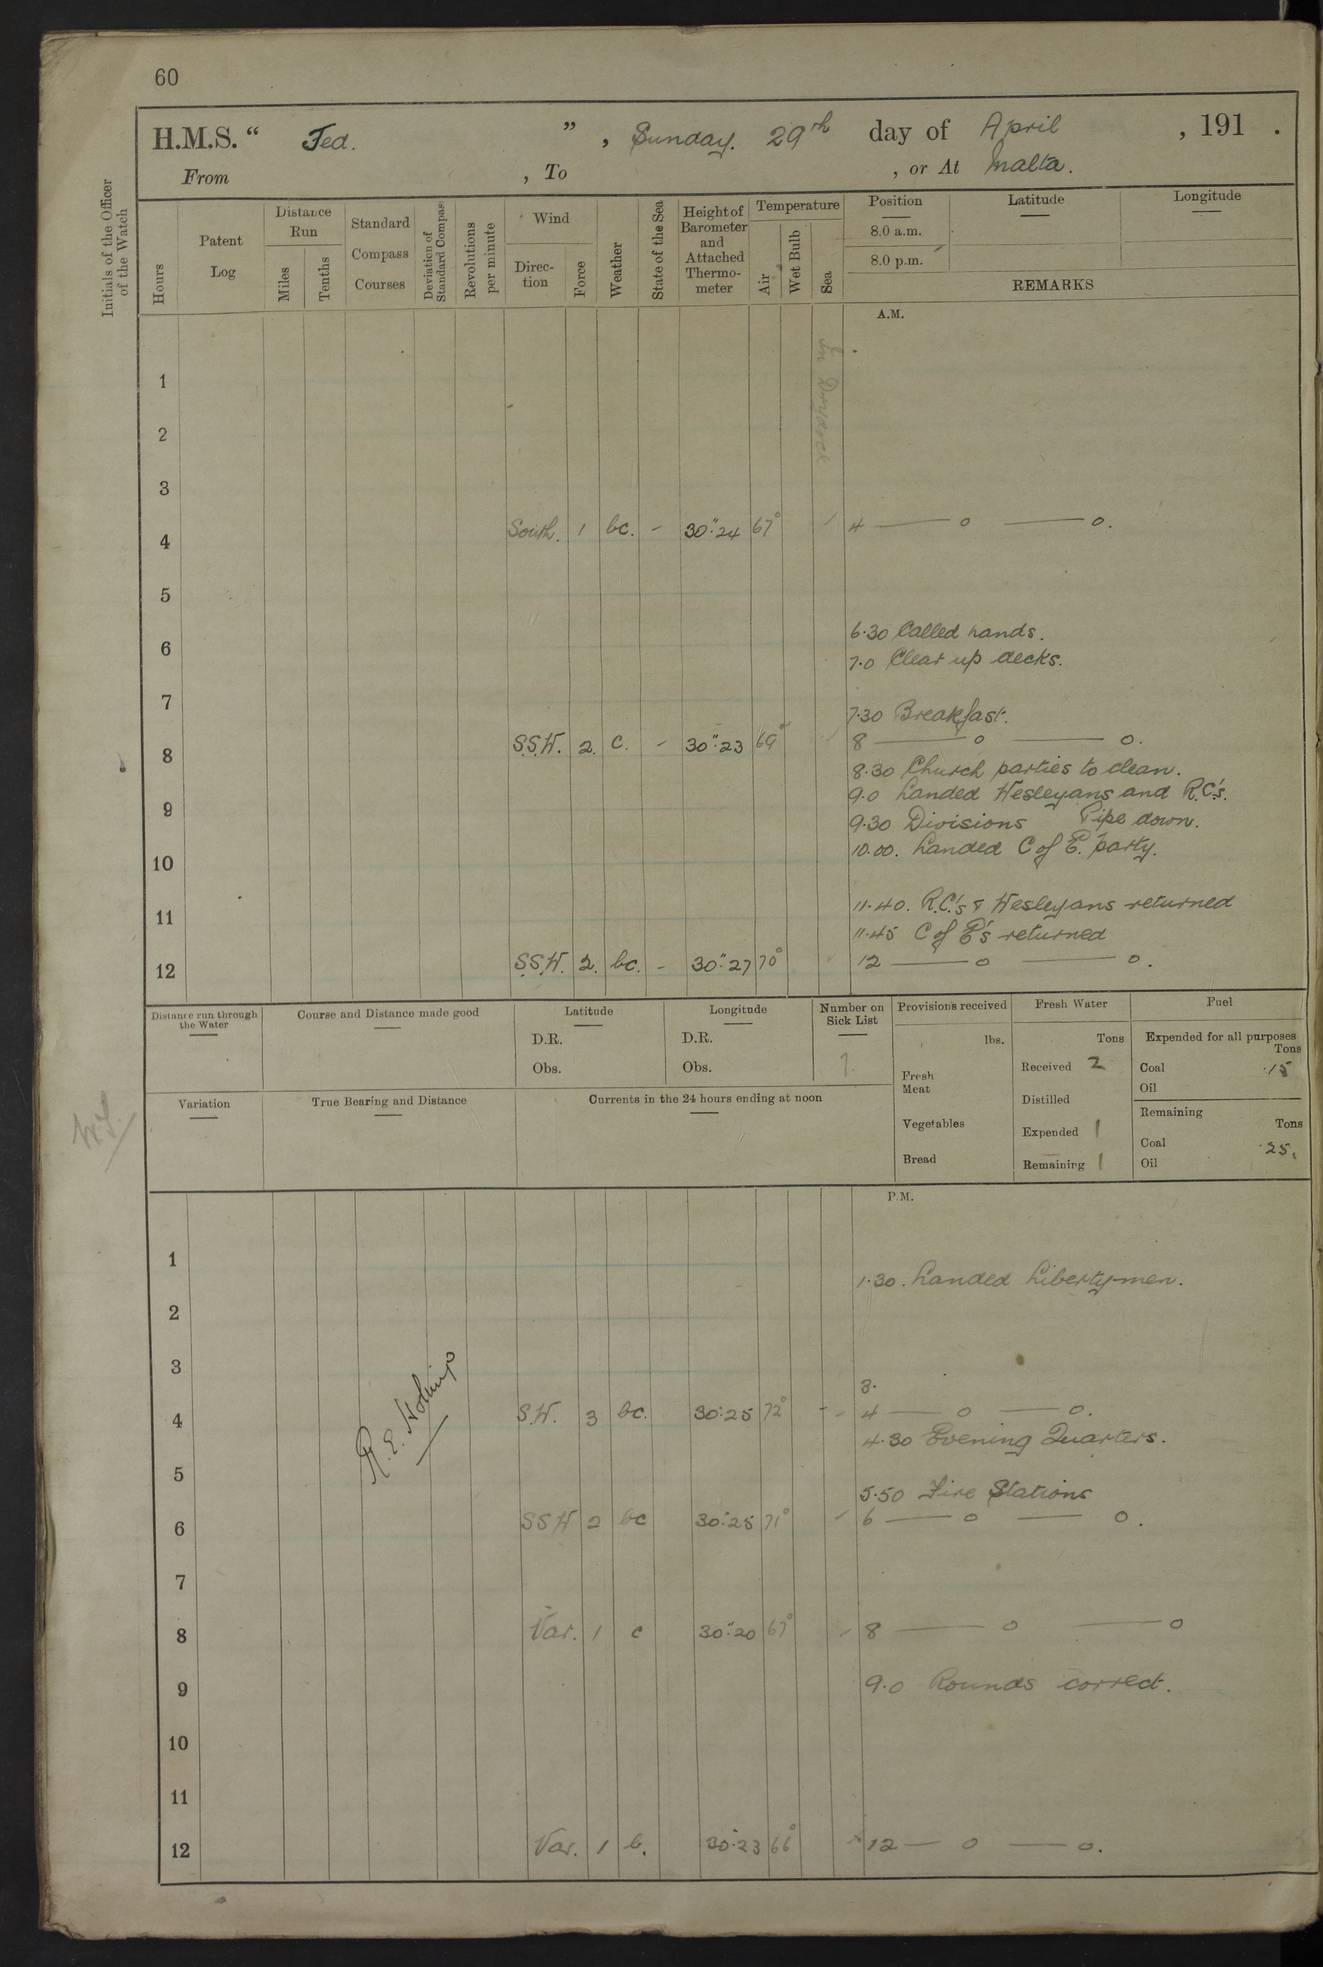 60
H.M.S. “ Jed. ” , Sunday. 29th day of April , 191 .
From , To , or At Malta.
Initials of the Officer of the Watch
Hours
Patent Log
Distance Run
Miles
Tenths
Standard Compass Courses
Deviation of Standard Compass
Revolutions per minute
Wind
Direction
Force
Weather
State of the Sea
Height of Barometer and Attached Thermometer
Temperature
Air
Wet Bulb
Sea
Position
8.0 a.m.
8.0 p.m.
Latitude
Longitude
REMARKS
A.M.
In Dry Dock
1
2
3
4 South. 1 bc. - 30":24 67° 4 —— o —— o.
5
6 6.30 Called hands.
7.0 Clear up decks.
7
7.30 Breakfast.
8 S.S.W. 2. c. - 30":23 69° 8 —— o —— o.
8.30 Church parties to clean.
9 9.0 Landed Wesleyans and R.C's.
9.30 Divisions Pipe down.
10 10.00. Landed C of E. party.
11 11.40. R.C.'s & Wesleyans returned
11.45 C of E's returned
12 S.S.W. 2. bc. - 30":27 70° 12 —— o —— o.
Distance run through the Water
Course and Distance made good
Latitude
D.R.
Obs.
Longitude
D.R.
Obs.
Number on Sick List
Provisions received
lbs.
Fresh Meat
Vegetables
Bread
Fresh Water
Tons
Received 2
Distilled
Expended 1
Remaining 1
Fuel
Expended for all purposes
Tons
Coal .15
Oil
Remaining
Tons
Coal .25.
Oil
Variation
True Bearing and Distance
Currents in the 24 hours ending at noon
P.M.
1
1.30. Landed Liberty-men.
2
3
3.
4 S.W. 3 bc. 30":25 72° - 4 —— o —— o.
4.30 Evening Quarters.
5
5.50 Fire Stations
6 SSW 2 bc 30":25 71° 6 —— o —— o.
7
8 Var. 1 c 30":20 67° 8 —— o —— o
9 9.0 Rounds correct.
10
11
12 Var. 1 b. 30":23 66° 12 — o — o.